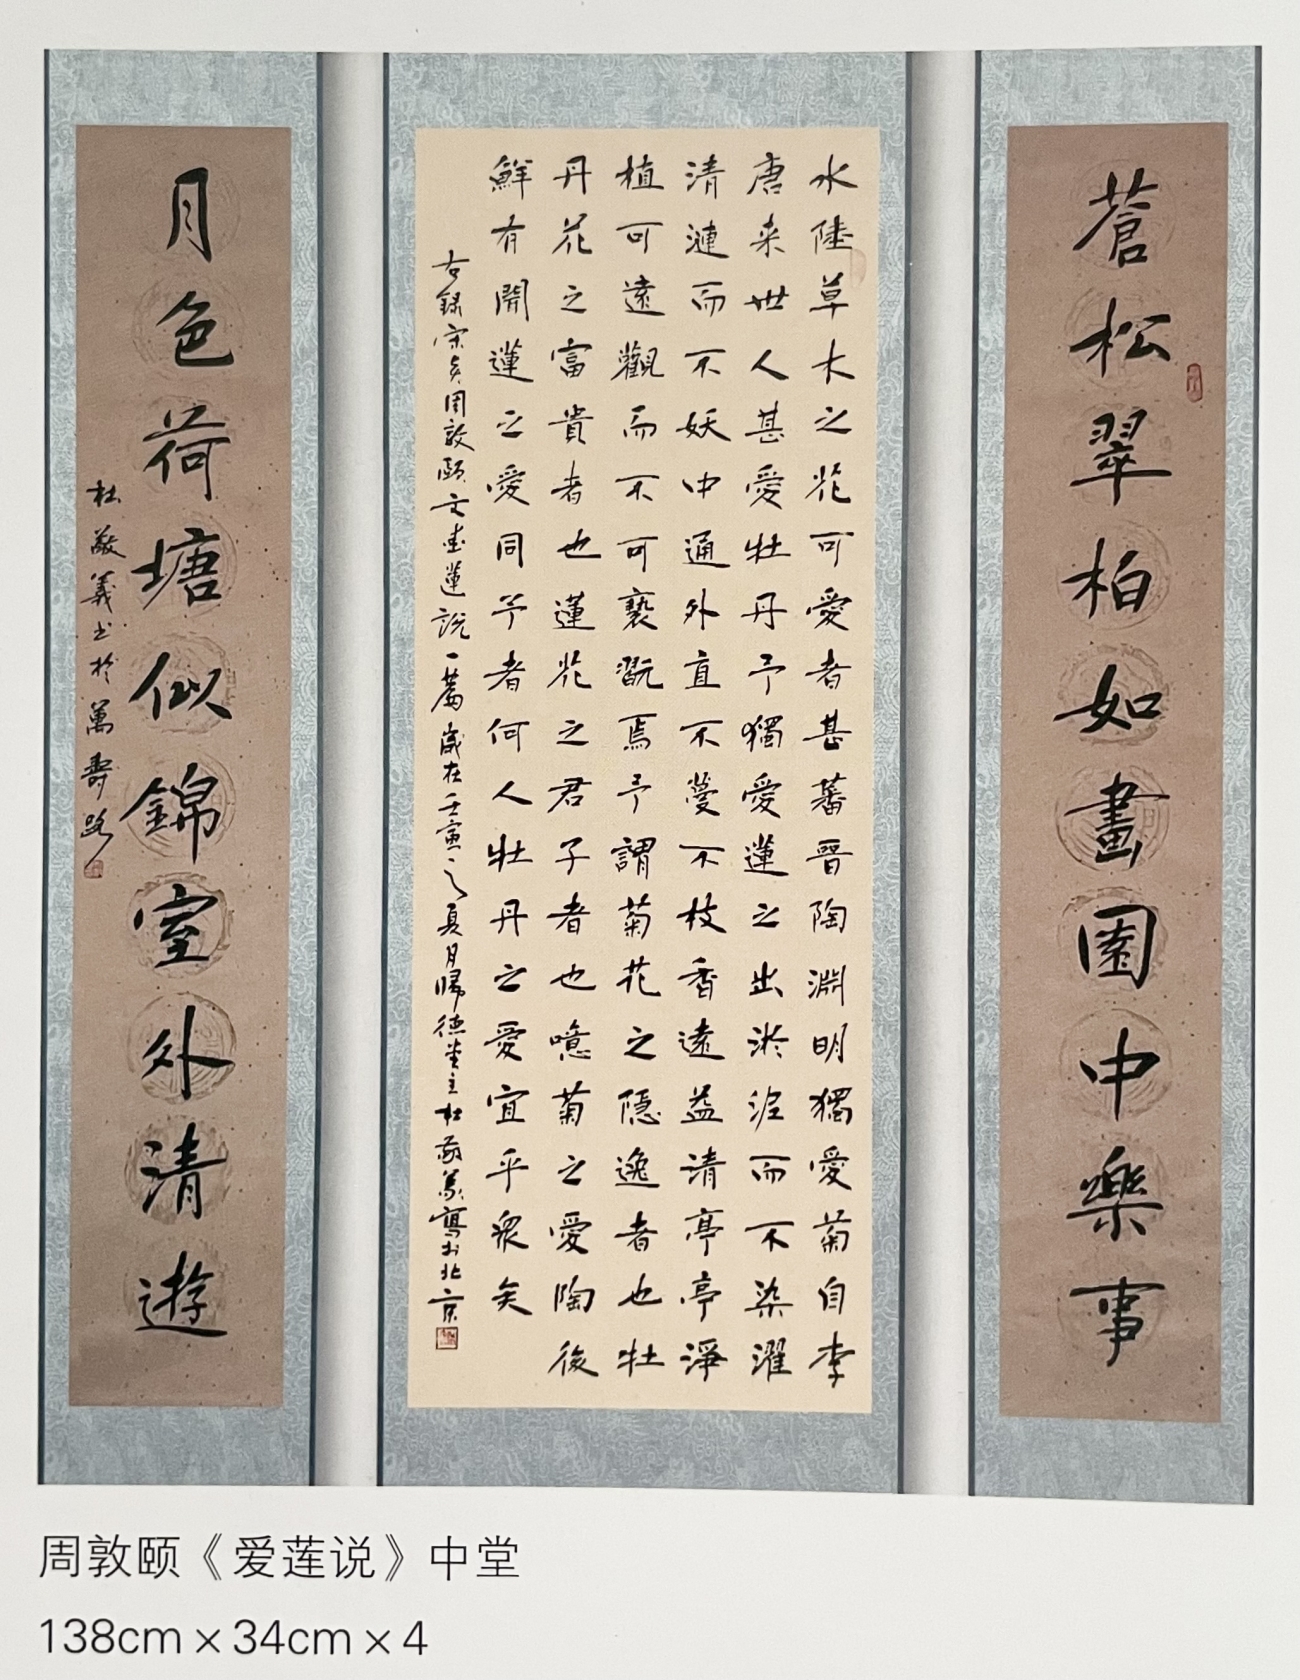 蒼松翠柏如畫園中樂事
水陸草木之花可愛者甚蕃晉陶淵明獨愛菊自李
唐来世人甚愛牡丹予獨愛蓮之出淤泥而不染濯
清漣而不妖中通外直不蔓不枝香遠益清亭亭淨
植可遠觀而不可褻翫焉予謂菊花之隱逸者也牡
丹花之富貴者也蓮花之君子者也噫菊之愛陶後
鮮有聞蓮之愛同予者何人牡丹之愛宜乎衆矣
右録宋周敦頤文愛蓮説一篇歲在壬寅之夏月歸德堂主杜敬義寫於北京
月色荷塘似錦室外清遊
杜敬義书於萬壽路
周敦颐《爱莲说》中堂
138cm×34cm×4